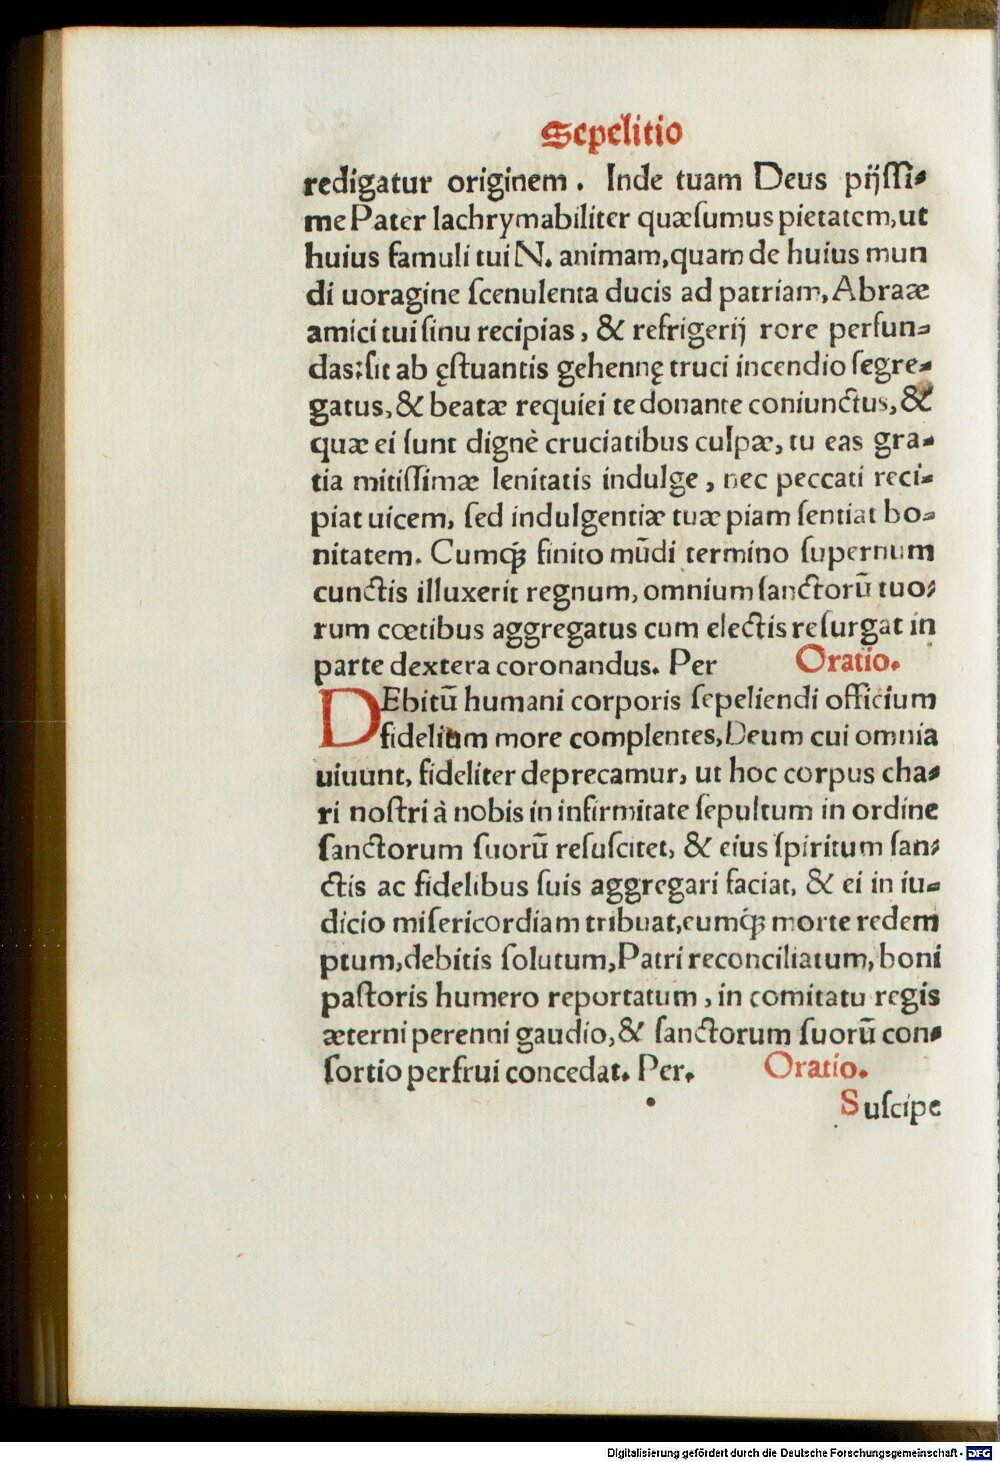 Sepelitio
redigatur originem. Inde tuam Deus pijſſi-
me Pater lachrymabiliter quæſumus pietatem, ut
huius famuli tui N. animam, quam de huius mun
di uoragine ſcenulenta ducis ad patriam, Abraæ
amici tui ſinu recipias, & refrigerij rore perfun-
das: ſit ab ęſtuantis gehennę truci incendio ſegre-
gatus, & beatæ requiei te donante coniunctus, &
quæ ei ſunt dignè cruciatibus culpæ, tu eas gra-
tia mitiſſimæ lenitatis indulge, nec peccati reci-
piat uicem, ſed indulgentiæ tuæ piam ſentiat bo-
nitatem. Cumq́ꝫ finito mũdi termino ſupernum
cunctis illuxerit regnum, omnium ſanctorũ tuo-
rum cœtibus aggregatus cum electis reſurgat in
parte dextera coronandus. Per Oratio.
DEbitũ humani corporis ſepeliendi officium
fidelium more complentes, Deum cui omnia
uiuunt, fideliter deprecamur, ut hoc corpus cha-
ri noſtri à nobis in infirmitate ſepultum in ordine
ſanctorum ſuorũ reſuſcitet, & eius ſpiritum ſan-
ctis ac fidelibus ſuis aggregari faciat, & ei in iu-
dicio miſericordiam tribuat, eumq́ꝫ morte redem
ptum, debitis ſolutum, Patri reconciliatum, boni
paſtoris humero reportatum, in comitatu regis
æterni perenni gaudio, & ſanctorum ſuorũ con-
ſortio perfrui concedat. Per. Oratio.
Suſcipe
Digitalisierung gefördert durch die Deutsche Forschungsgemeinschaft - DFG